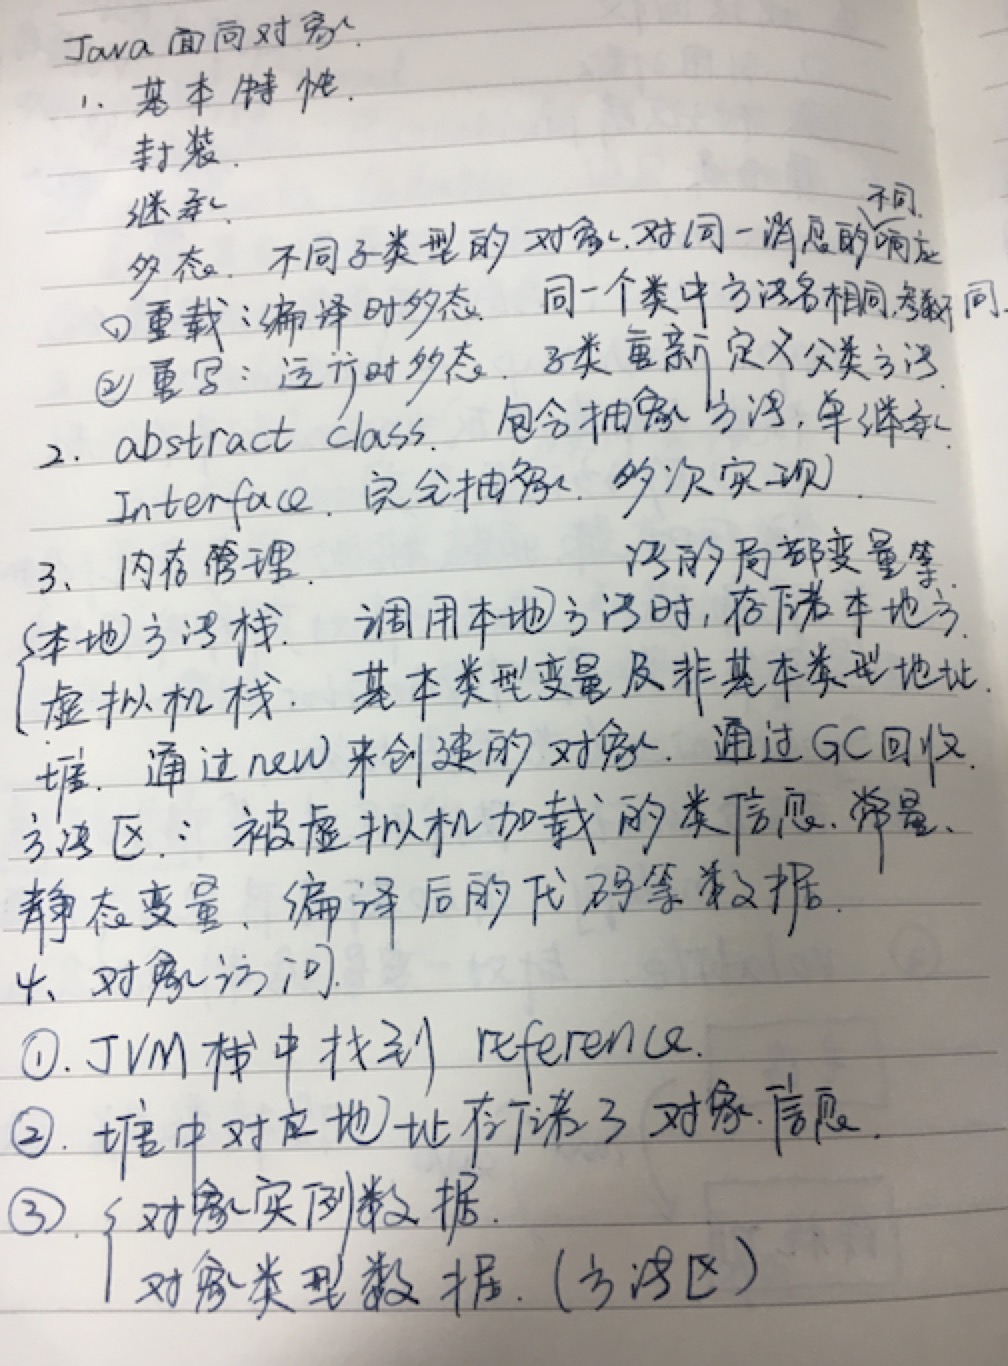 Java 面向对象.
1. 基本特性.
封装.
继承.
多态. 不同子类型的对象.对同一消息的不同响应
① 重载:编译时多态. 同一个类中方法名相同.参数不同.
② 重写:运行时多态. 子类重新定义父类方法.
2. abstract class. 包含抽象方法,单继承.
Interface. 完全抽象. 多次实现.
3、内存管理.
(本地)方法栈. 调用本地方法时,存储本地方
法的局部变量等.
虚拟机栈. 基本类型变量及非基本类型地址.
堆. 通过new来创建的对象. 通过GC回收.
方法区: 被虚拟机加载的类信息、常量、
静态变量、编译后的代码等数据.
4、对象访问.
①. JVM栈中找到 reference.
②. 堆中对应地址存储了对象信息.
③. { 对象实例数据.
对象类型数据. (方法区)